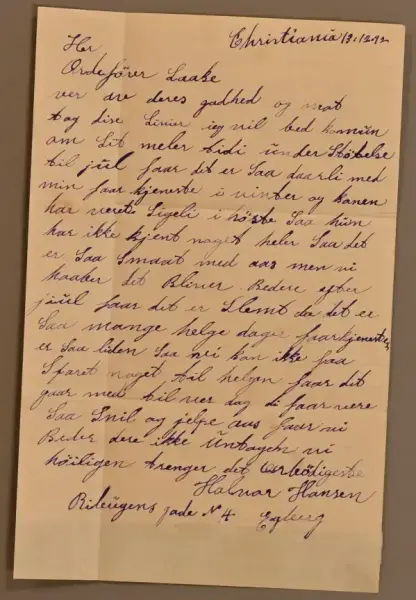 Christiania 19.12.12
Her
Ordefører Laake
ver av deres godhed og mot
tag dise Linier ieg vil bed komün
om Lit meler tidi ünder Støtelse
til jül faar det er Saa daarli med
min faar kjeneste i vinter og konen
har verets Sigeli i høste Saa hün
har ikke kjent noget heler Saa det
er Saa Smaat med aas men vi
haaber det Bliver Bedere efter
jüül faar det er Slemt da det er
Saa mange helge dager faarkjenesten
er Saa liden Saa vi kan ikke faa
Sparet noget til helgen faar det
gaar med til ver dag di faar vere
Saa Snil og jelpe aas faar vi
Beder dere ikke Üntagch vi
høiligen trenger det ærbødigeste
Halvor Hansen
gade N 4 Egberg